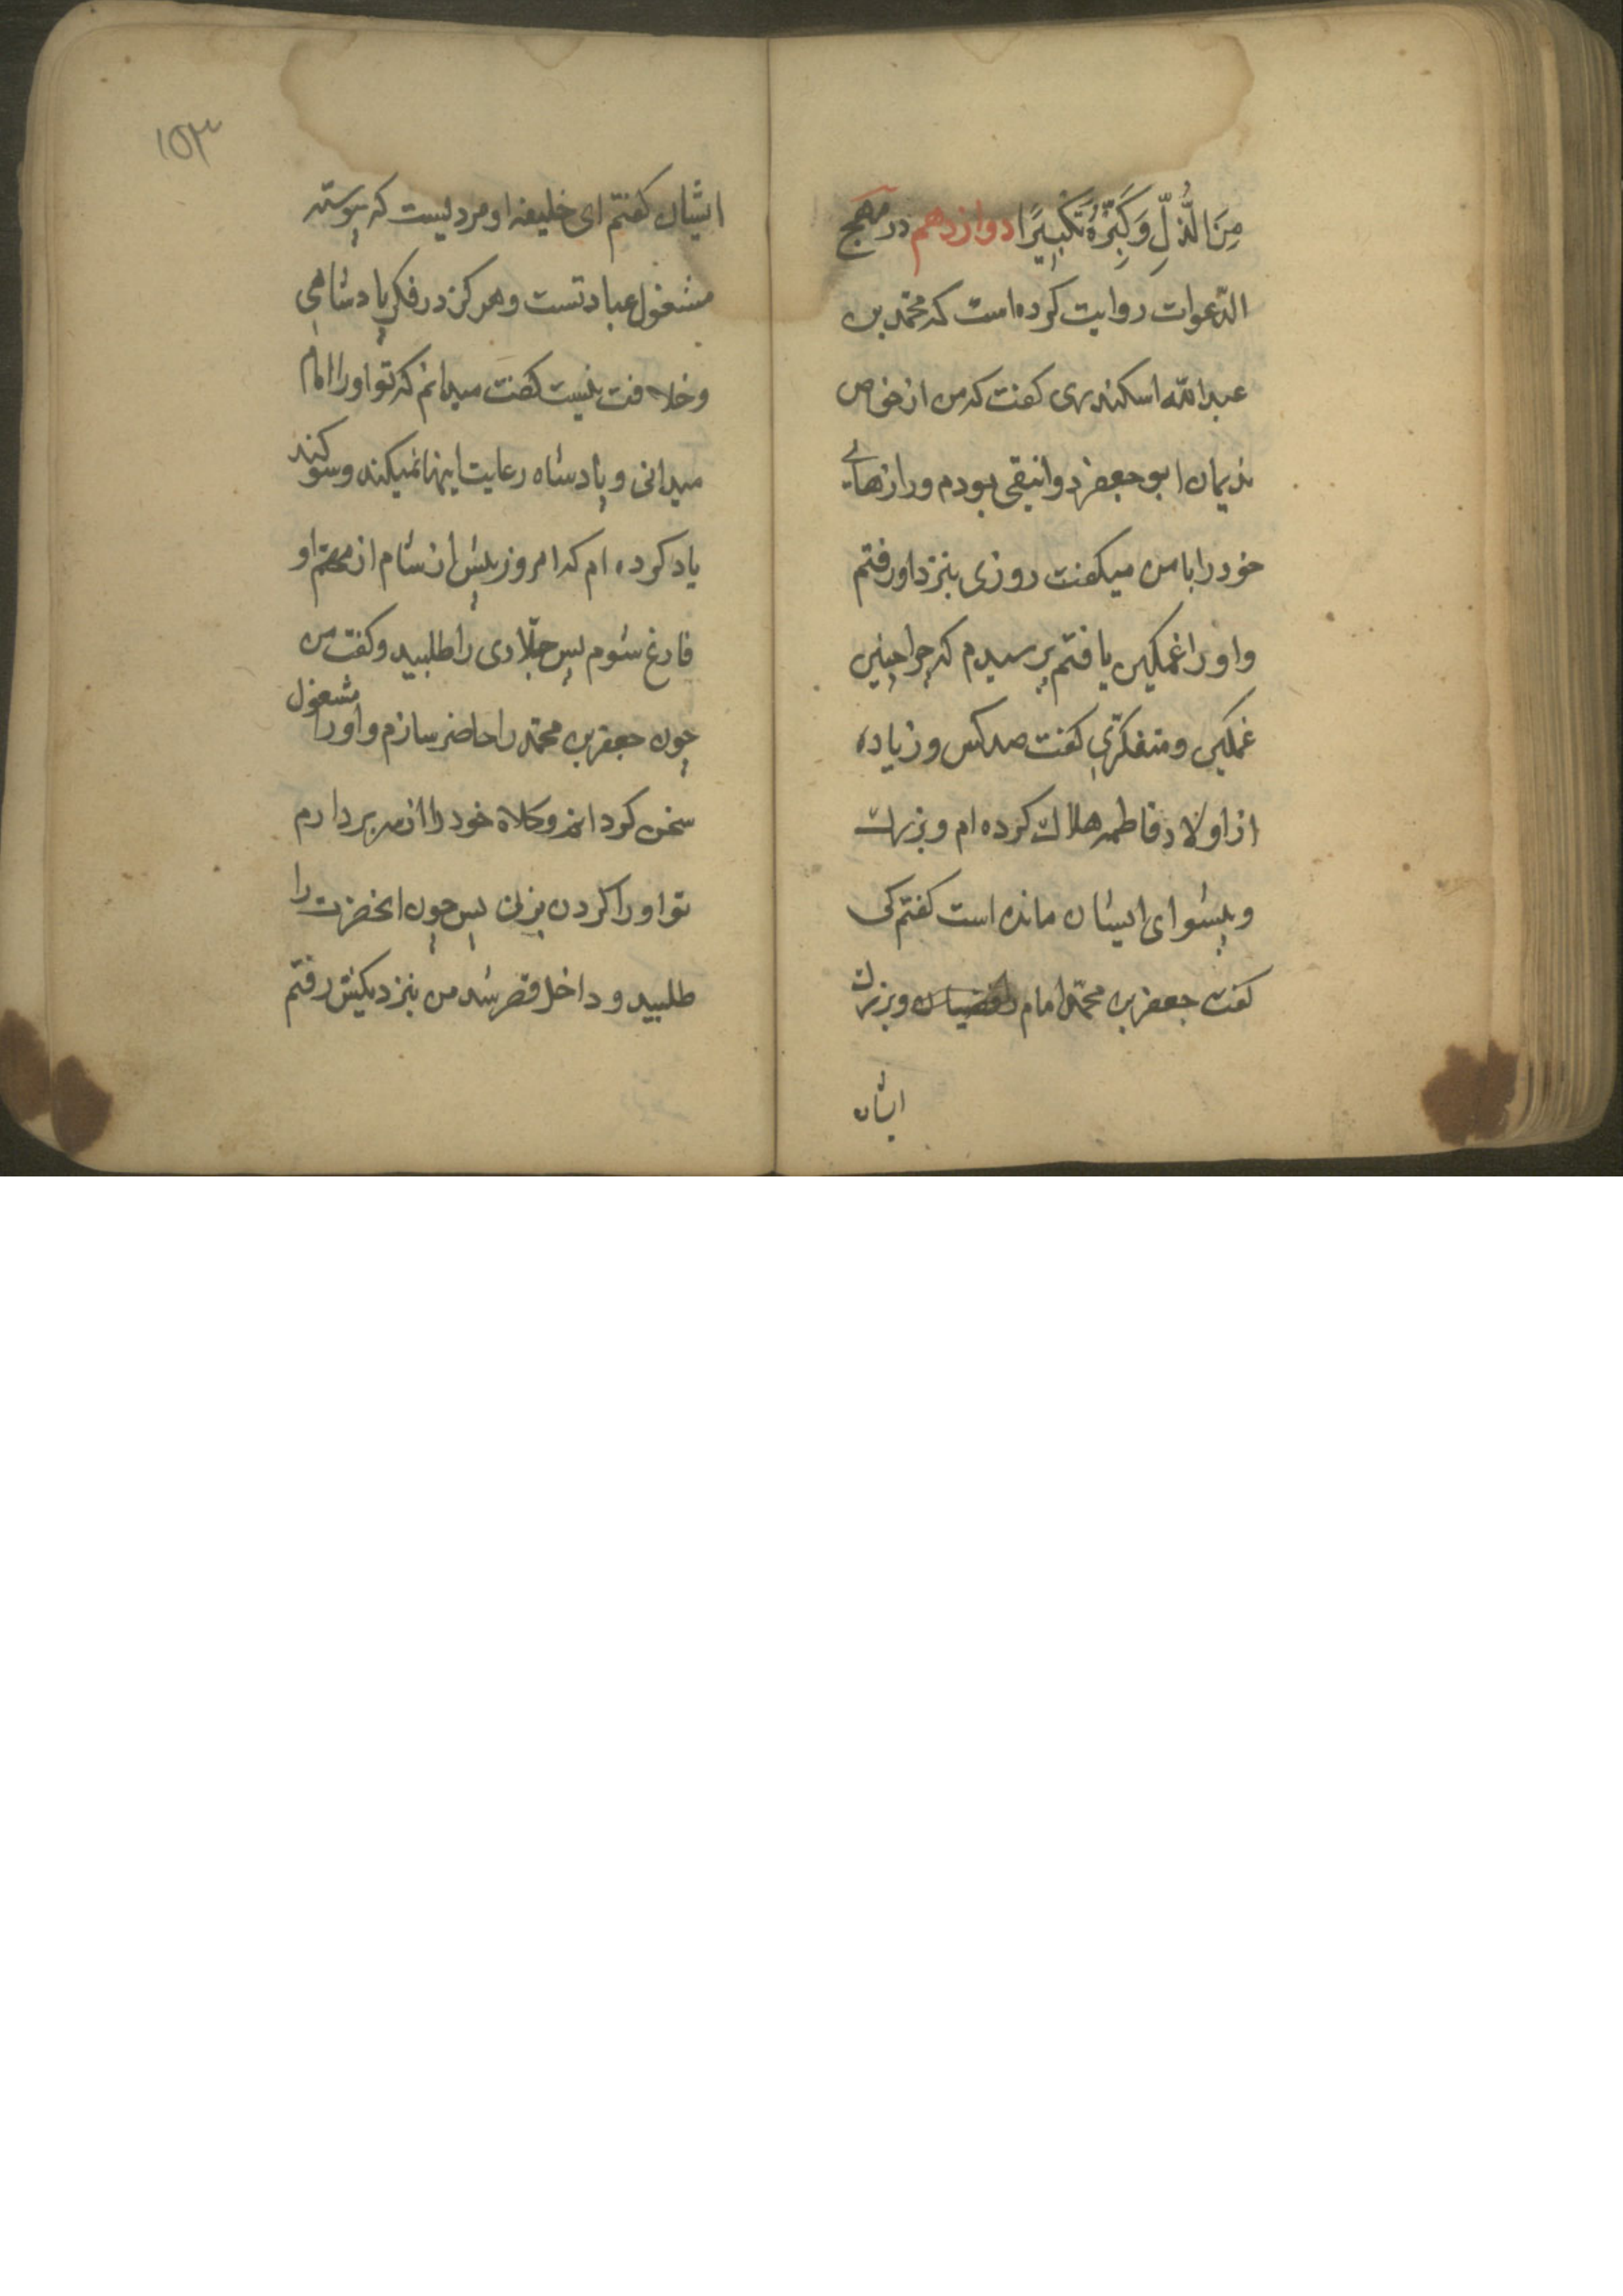 مِنَ الذُّلِّ وَكَبِّرْهُ تَكْبِيرًا دوازدهم در مهج
الدّعوات روایت کرده است که محمّد بن
عبد اللّه اسکندری کفت که من از خواص
ندیمان ابو جعفر دوانیقی بودم و رازهای
خود را با من میکفت روزی بنزد او رفتم
و او را غمکین یافتم پرسیدم که چرا چنین
غمکین و متفکری کفت صد کس و زیاده
از اولاد فاطمه هلاک کرده ام و بزرك
و پیشوای ایشان مانده است کفتم کی
کفت جعفر بن محمّد امام رافضیان و بزرك
ایشان
۱۵۳
ایشان کفتم ای خلیفه او مردیست که پیوسته
مشغول عبادتست و هرکز در فکر پادشاهی
و خلافت نیست کفت میدانم که تو او را امام
میدانی و پادشاه رعایت اینها نمیکند و سوکند
یاد کرده ام که امروز پیش از شام از او
فارغ شوم پس جلّادی را طلبید و کفت من
چون جعفر بن محمّد را حاضر سازم و او را مشغول
سخن کردانم و کلاه خود را از سر بردارم
تو او را کردن بزن پس چون انحضرت را
طلبید و داخل قصر شد من بنزدیکش رفتم